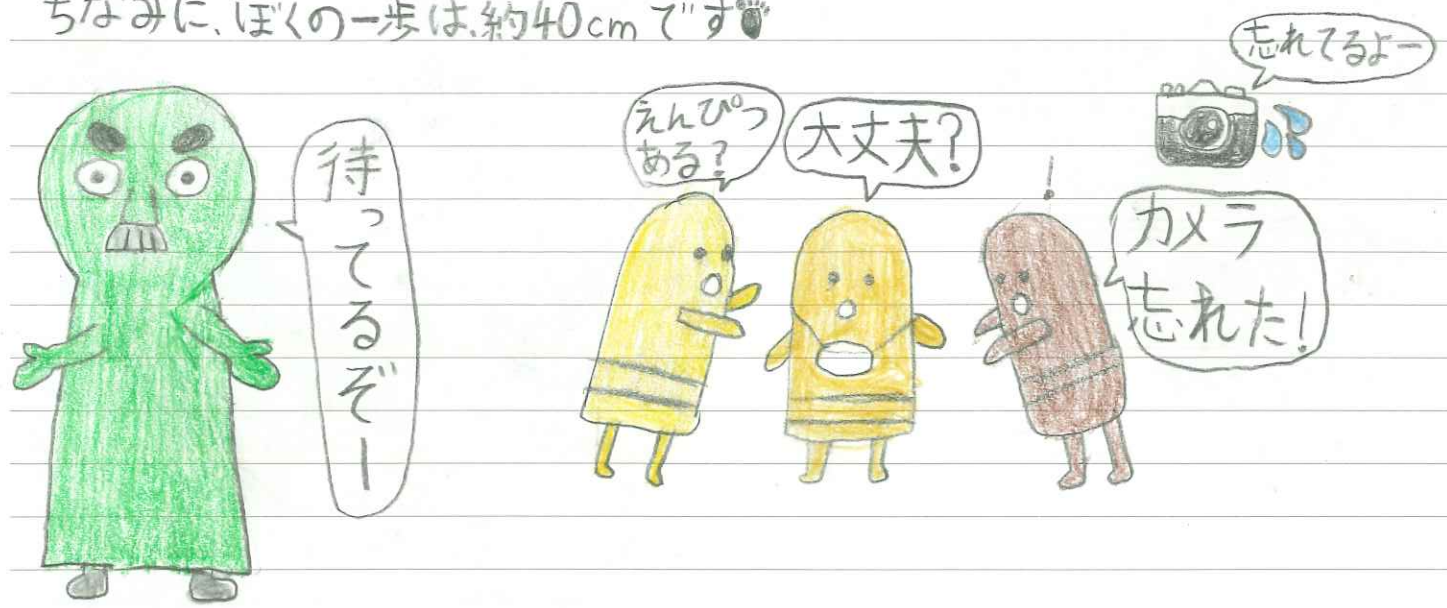 ちなみに、ぼくの一歩は、約40cmです
待ってるぞー
えんぴつ
ある?
大丈夫?
忘れてるよー
!
カメラ
忘れた!